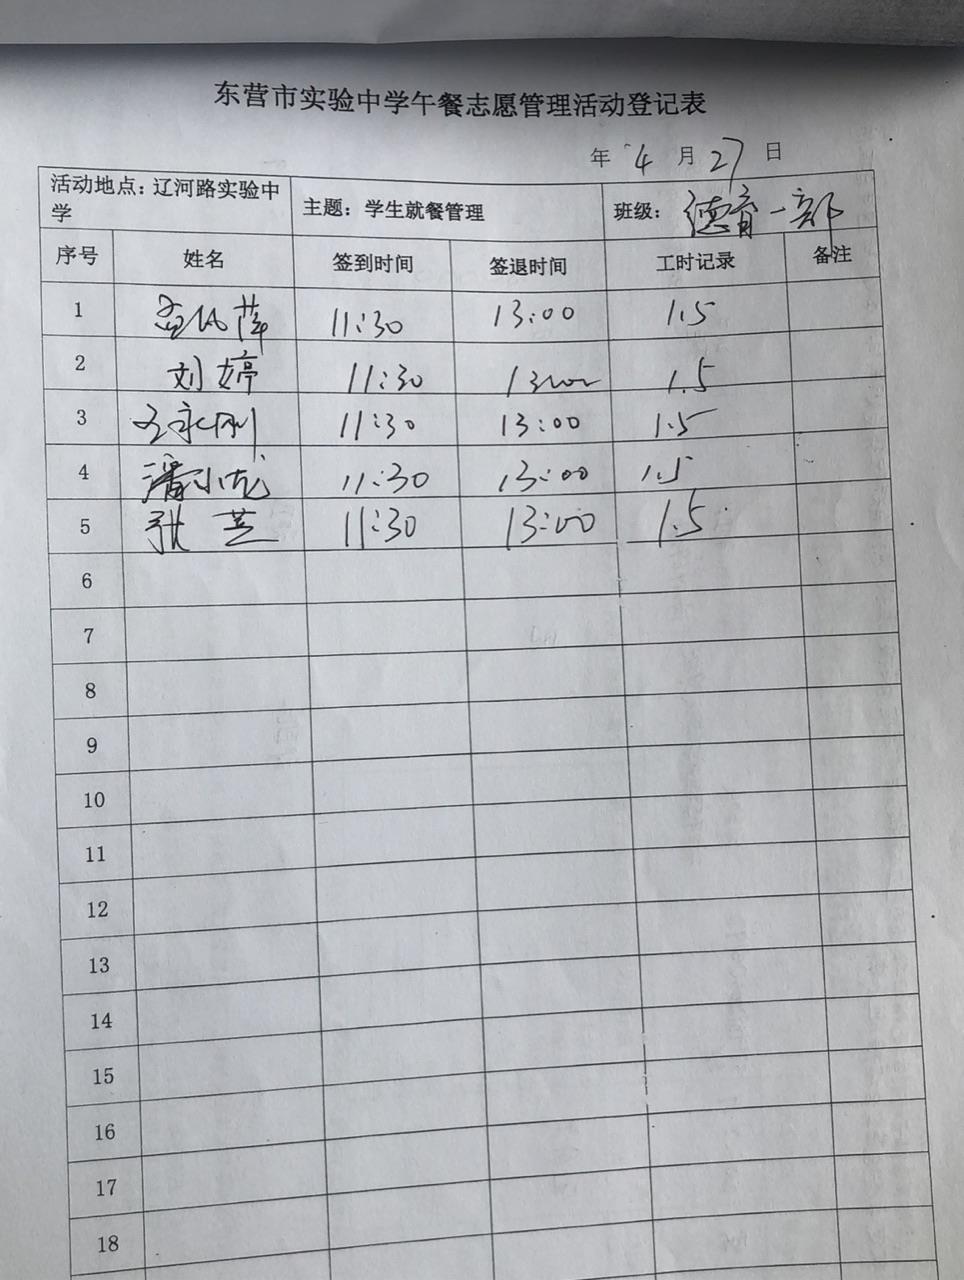 东营市实验中学午餐志愿管理活动登记表
年 4 月 27 日
活动地点：辽河路实验中学 主题：学生就餐管理 班级：德育一部
序号 姓名 签到时间 签退时间 工时记录 备注
1 11:30 13:00 1.5
2 刘婷 11:30 13:00 1.5
3 王永刚 11:30 13:00 1.5
4 潘小龙 11:30 13:00 1.5
5 张芝 11:30 13:00 1.5
6
7
8
9
10
11
12
13
14
15
16
17
18